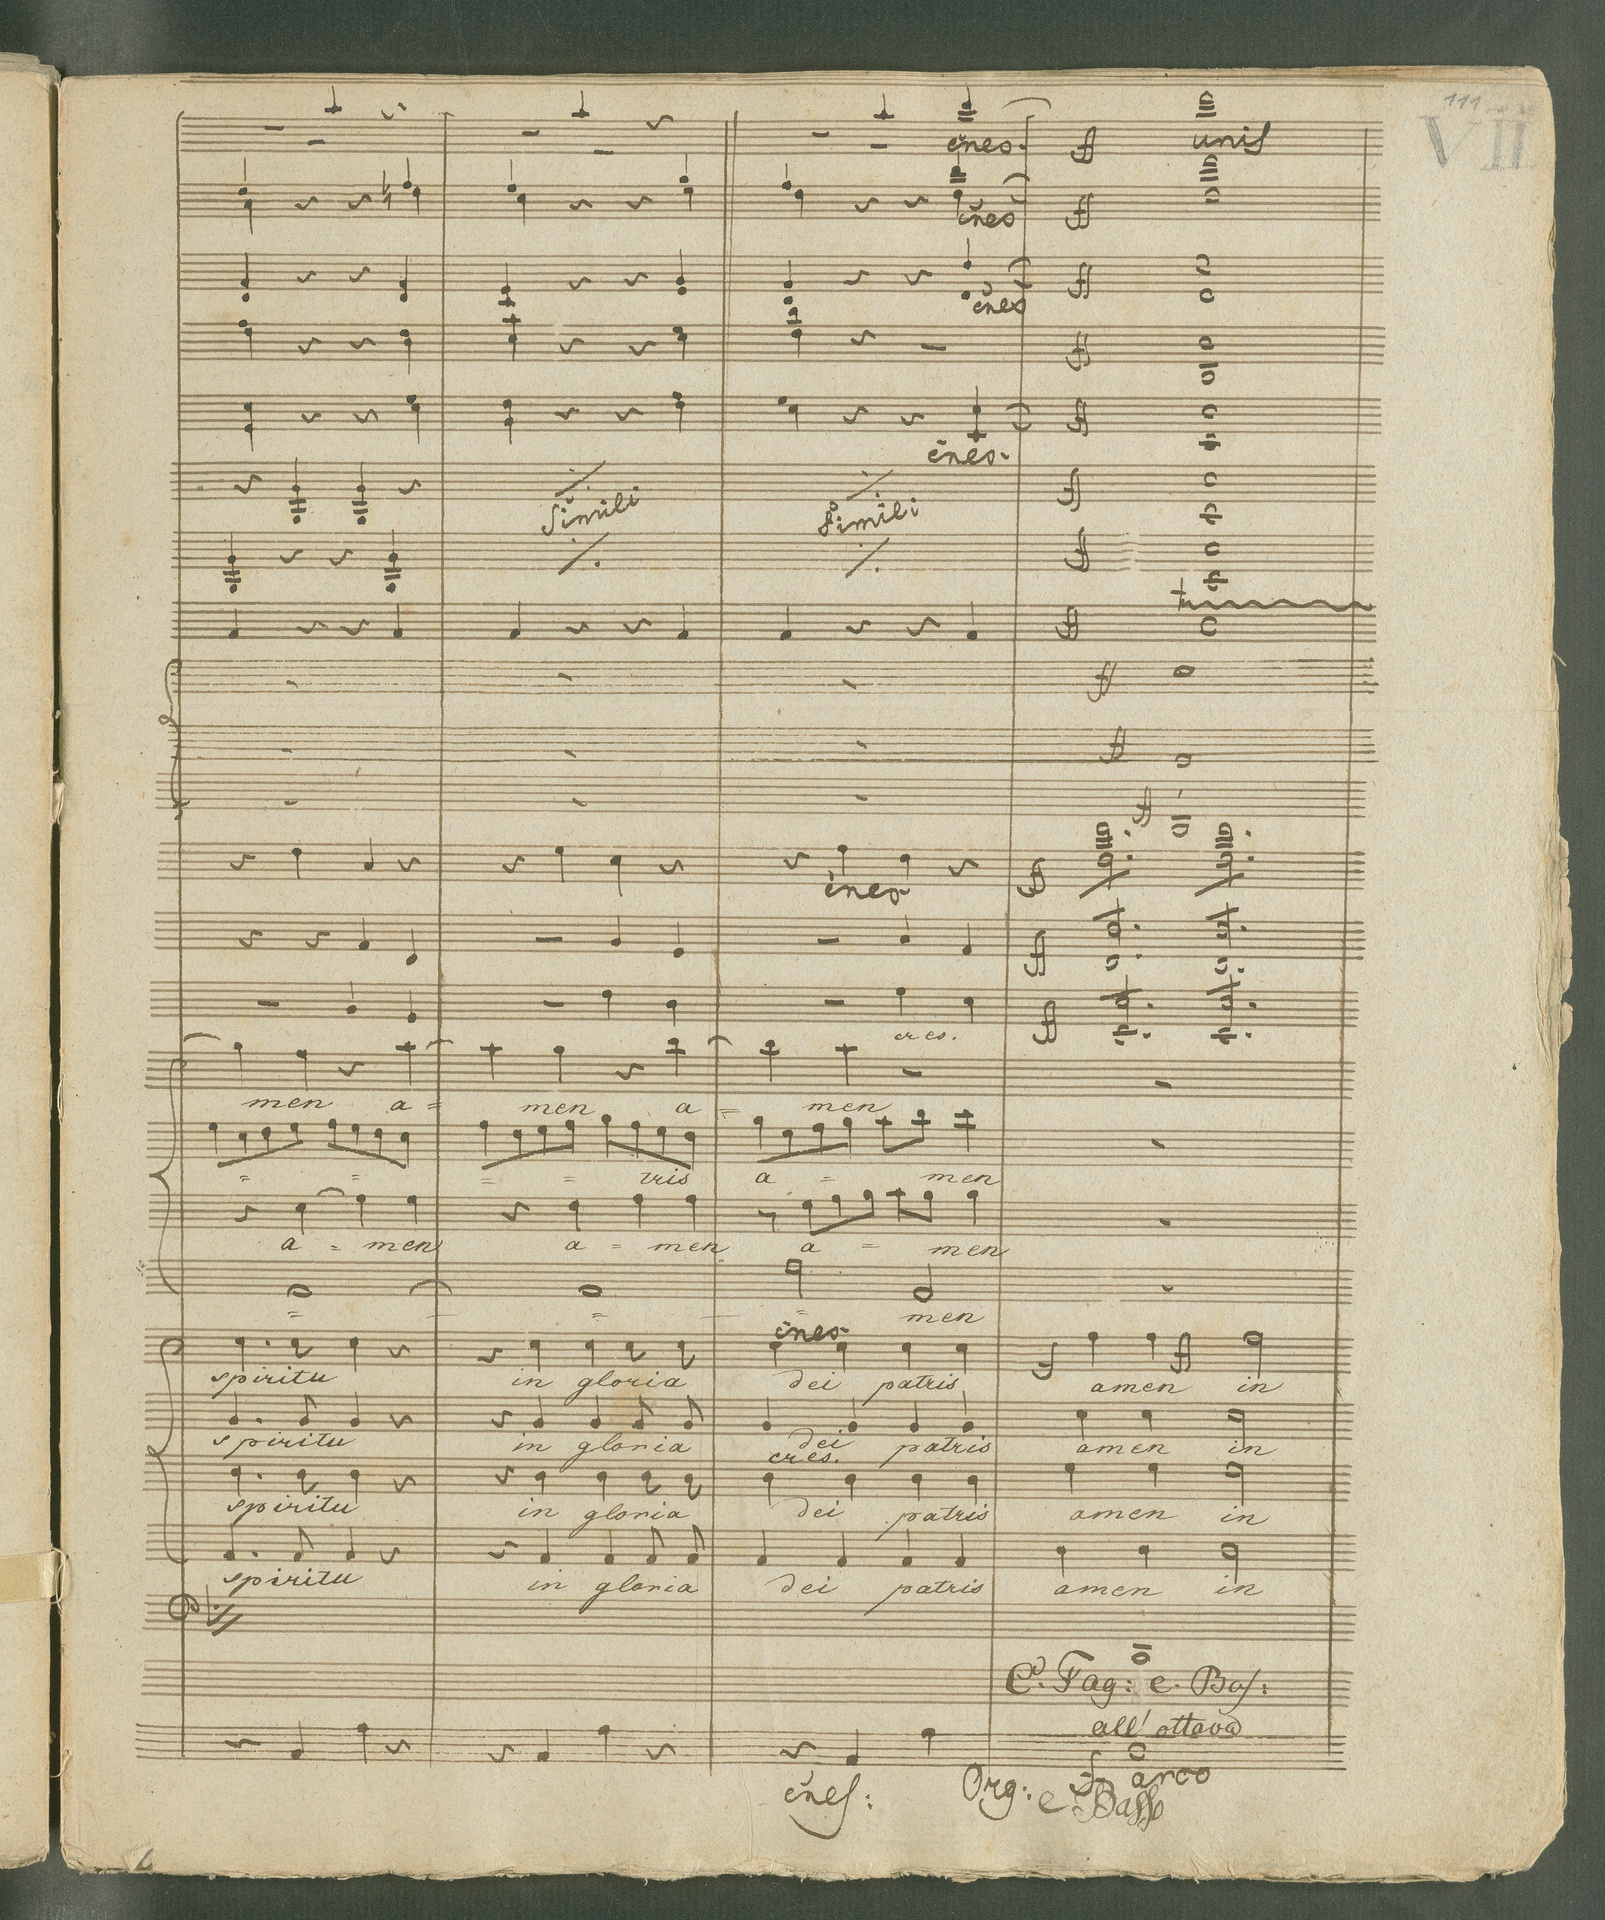 111
VII
cres.
unis
cres
cres
cres.
Simili
Simili
tr
cres.
cres.
men a = men a = men
= = = = tris a = men
a = men a = men a = men
= = = men
cres.
spiritu in gloria dei patris amen in
spiritu in gloria dei patris amen in
cres.
spiritu in gloria dei patris amen in
spiritu in gloria dei patris amen in
C. Fag: e. Bas:
all' ottava
arco
cres: Org: e Basso